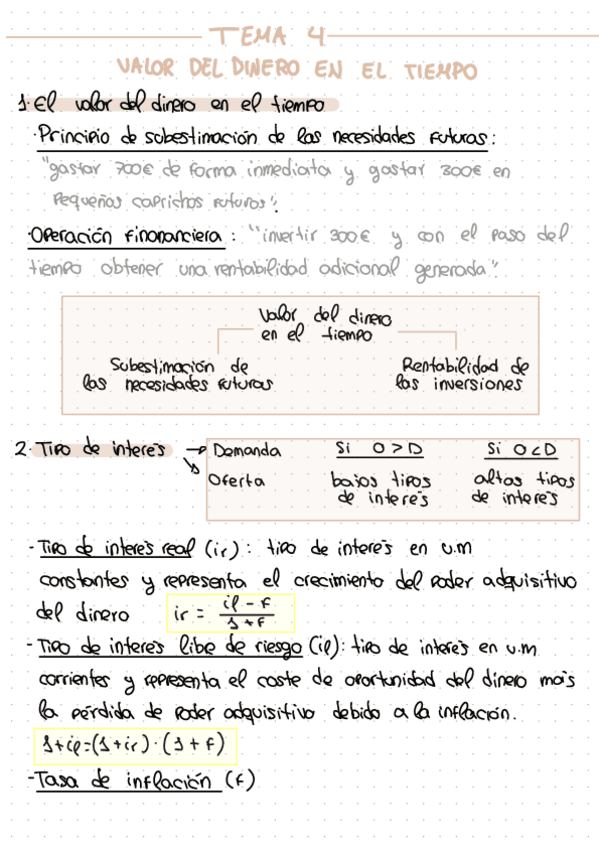 TEMA 4
VALOR DEL DINERO EN EL TIEMPO
1. El valor del dinero en el tiempo
· Principio de subestimación de las necesidades futuras:
"gastar 700€ de forma inmediata y gastar 300€ en
pequeños caprichos futuros".
· Operación finonanciera: "invertir 300€ y con el paso del
tiempo obtener una rentabilidad adicional generada".
Valor del dinero
en el tiempo
Subestimación de
las necesidades futuras
Rentabilidad de
las inversiones
2. Tipo de interés → Demanda Si O>D Si O<D
Oferta bajos tipos altos tipos
de interés de interés
- Tipo de interés real (ir): tipo de interés en u.m
constantes y representa el crecimiento del poder adquisitivo
del dinero ir = il - f / 1 + f
- Tipo de interés libe de riesgo (il): tipo de interés en u.m
corrientes y representa el coste de oportunidad del dinero más
la pérdida de poder adquisitivo debido a la inflación.
1+il=(1+ir)·(1+f)
- Tasa de inflación (f)